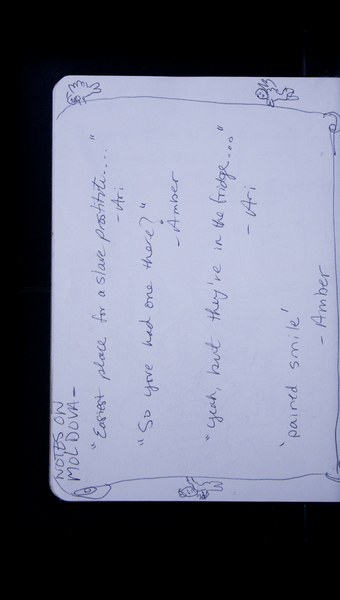 NOTES ON
MOLDOVA -
"Easiest place for a slave prostitute...."
- Ari
"So youve had one there?"
- Amber
"Yeah, but they're in the fridge..."
- Ari
'pained smile'
- Amber